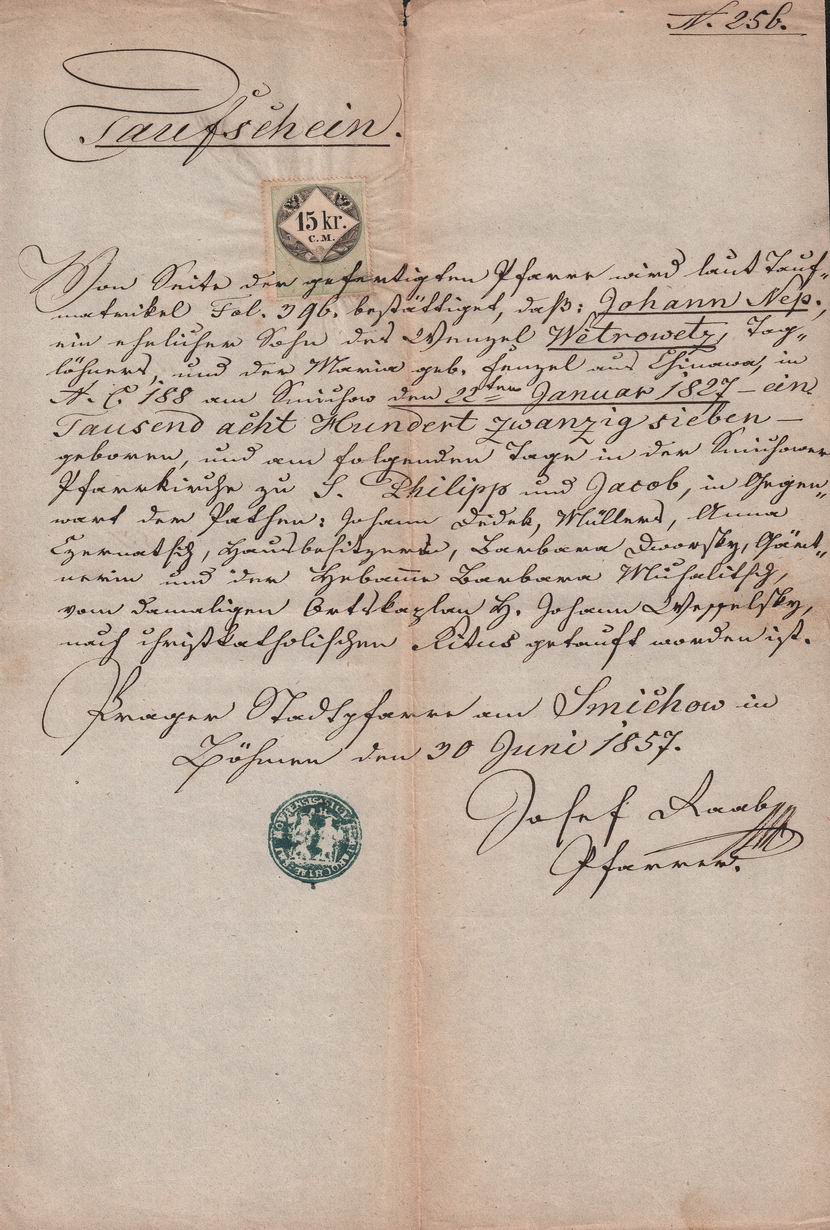 N. 256.
Taufschein.
15 kr.
C.M.
Von Seite der gefertigten Pfarre wird laut Tauf-
matrikel Fol. 396. bestättiget, daß: Johann Nep.,
ein ehelicher Sohn des Wenzel Wetrowetz, Tag-
löhners, und der Maria geb. Fenzel aus Chinawa, in
N. C. 188 am Smichow den 22ten Januar 1827 – ein
Tausend acht Hundert zwanzig sieben –
geboren, und am folgenden Tage in der Smichower
Pfarrkirche zu S. Philipp und Jacob, in Gegen-
wart der Pathen: Johann Dédek, Müllers, Anna
Czernatsch, Hausbesitzerin, Barbara Dworsky, Gärt-
nerin und der Hebame Barbara Michalitsch,
vom damaligen Ortskaplan H. Johann Wesselsky,
nach christkatholischen Ritus getauft worden ist.
Prager Stadtpfarre am Smichow in
Böhmen den 30 Juni 1857.
Josef Raab
Pfarrer.